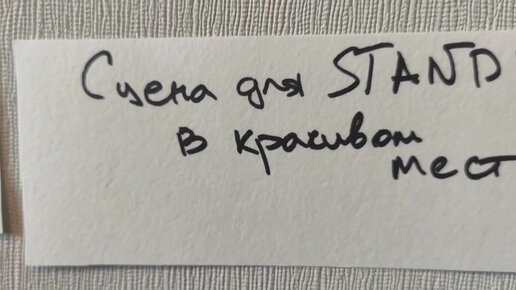 Сцена для STAND
в красивом
мест